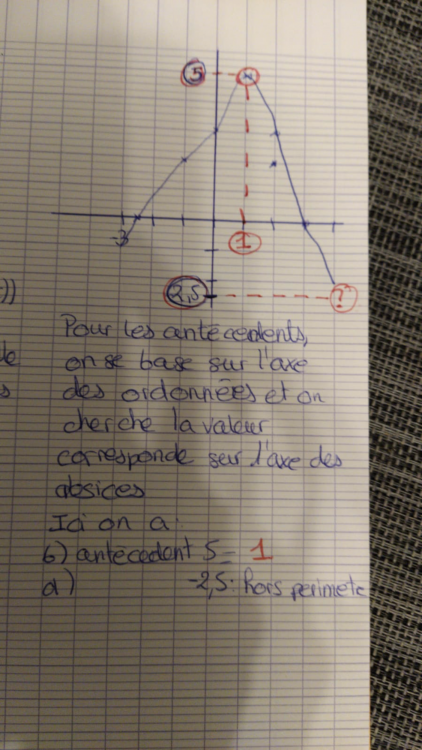 5
-3
1
2,5
?
))
Pour les antécédents,
on se base sur l'axe
des ordonnées et on
cherche la valeur
corresponde sur l'axe des
absices
Ici on a:
b) antecedent 5 = 1
d) -2,5: hors perimetre